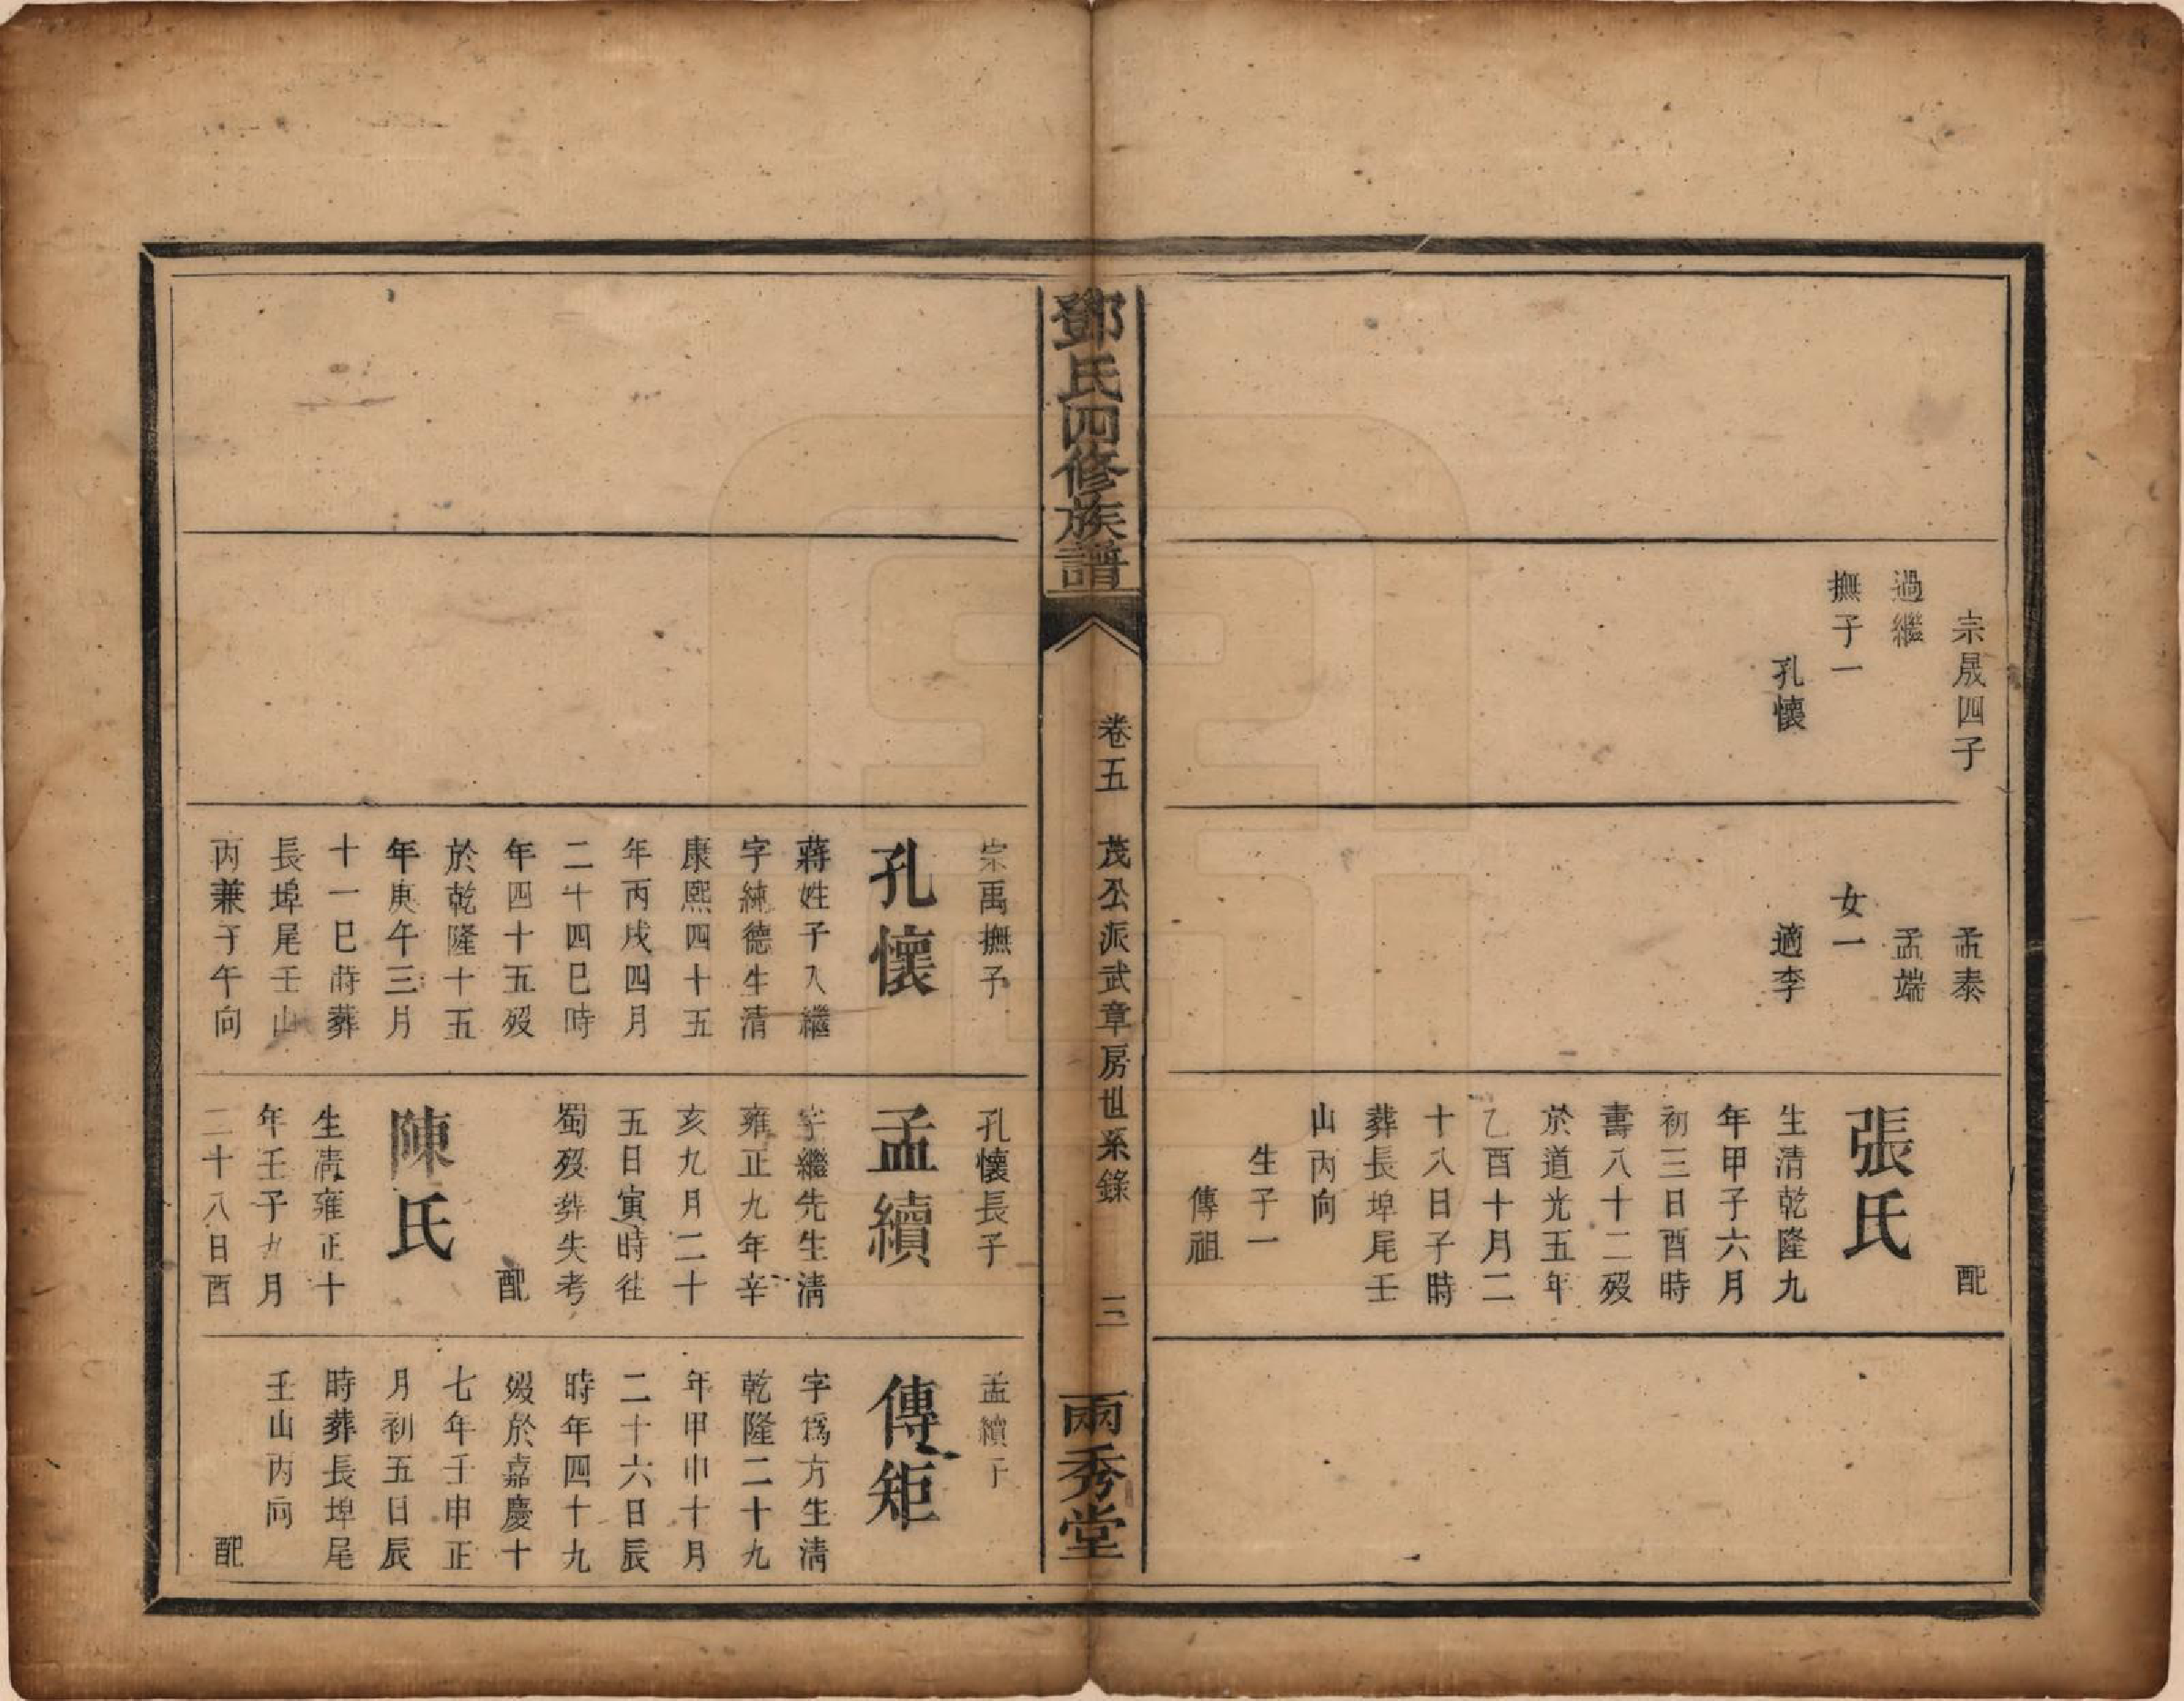 宗晟四子
過繼
撫子一
孔懷
孟泰
孟端
女一
適李
配
張氏
生清乾隆九
年甲子六月
初三日酉時
壽八十二歿
於道光五年
乙酉十月二
十八日子時
葬長埠尾壬
山丙向
生子一
傳祖
鄧氏四修族譜
卷五
茂公派武章房世系錄
三
兩秀堂
宗禹撫子
孔懷
蔣姓子入繼
字純德生清
康熙四十五
年丙戌四月
二十四巳時
年四十五歿
於乾隆十五
年庚午三月
十一巳時葬
長埠尾壬山
丙兼子午向
孔懷長子
孟續
字繼先生清
雍正九年辛
亥九月二十
五日寅時往
蜀歿葬失考
配
陳氏
生清雍正十
年壬子九月
二十八日酉
孟續子
傳矩
字為方生清
乾隆二十九
年甲申十月
二十六日辰
時年四十九
歿於嘉慶十
七年壬申正
月初五日辰
時葬長埠尾
壬山丙向
配